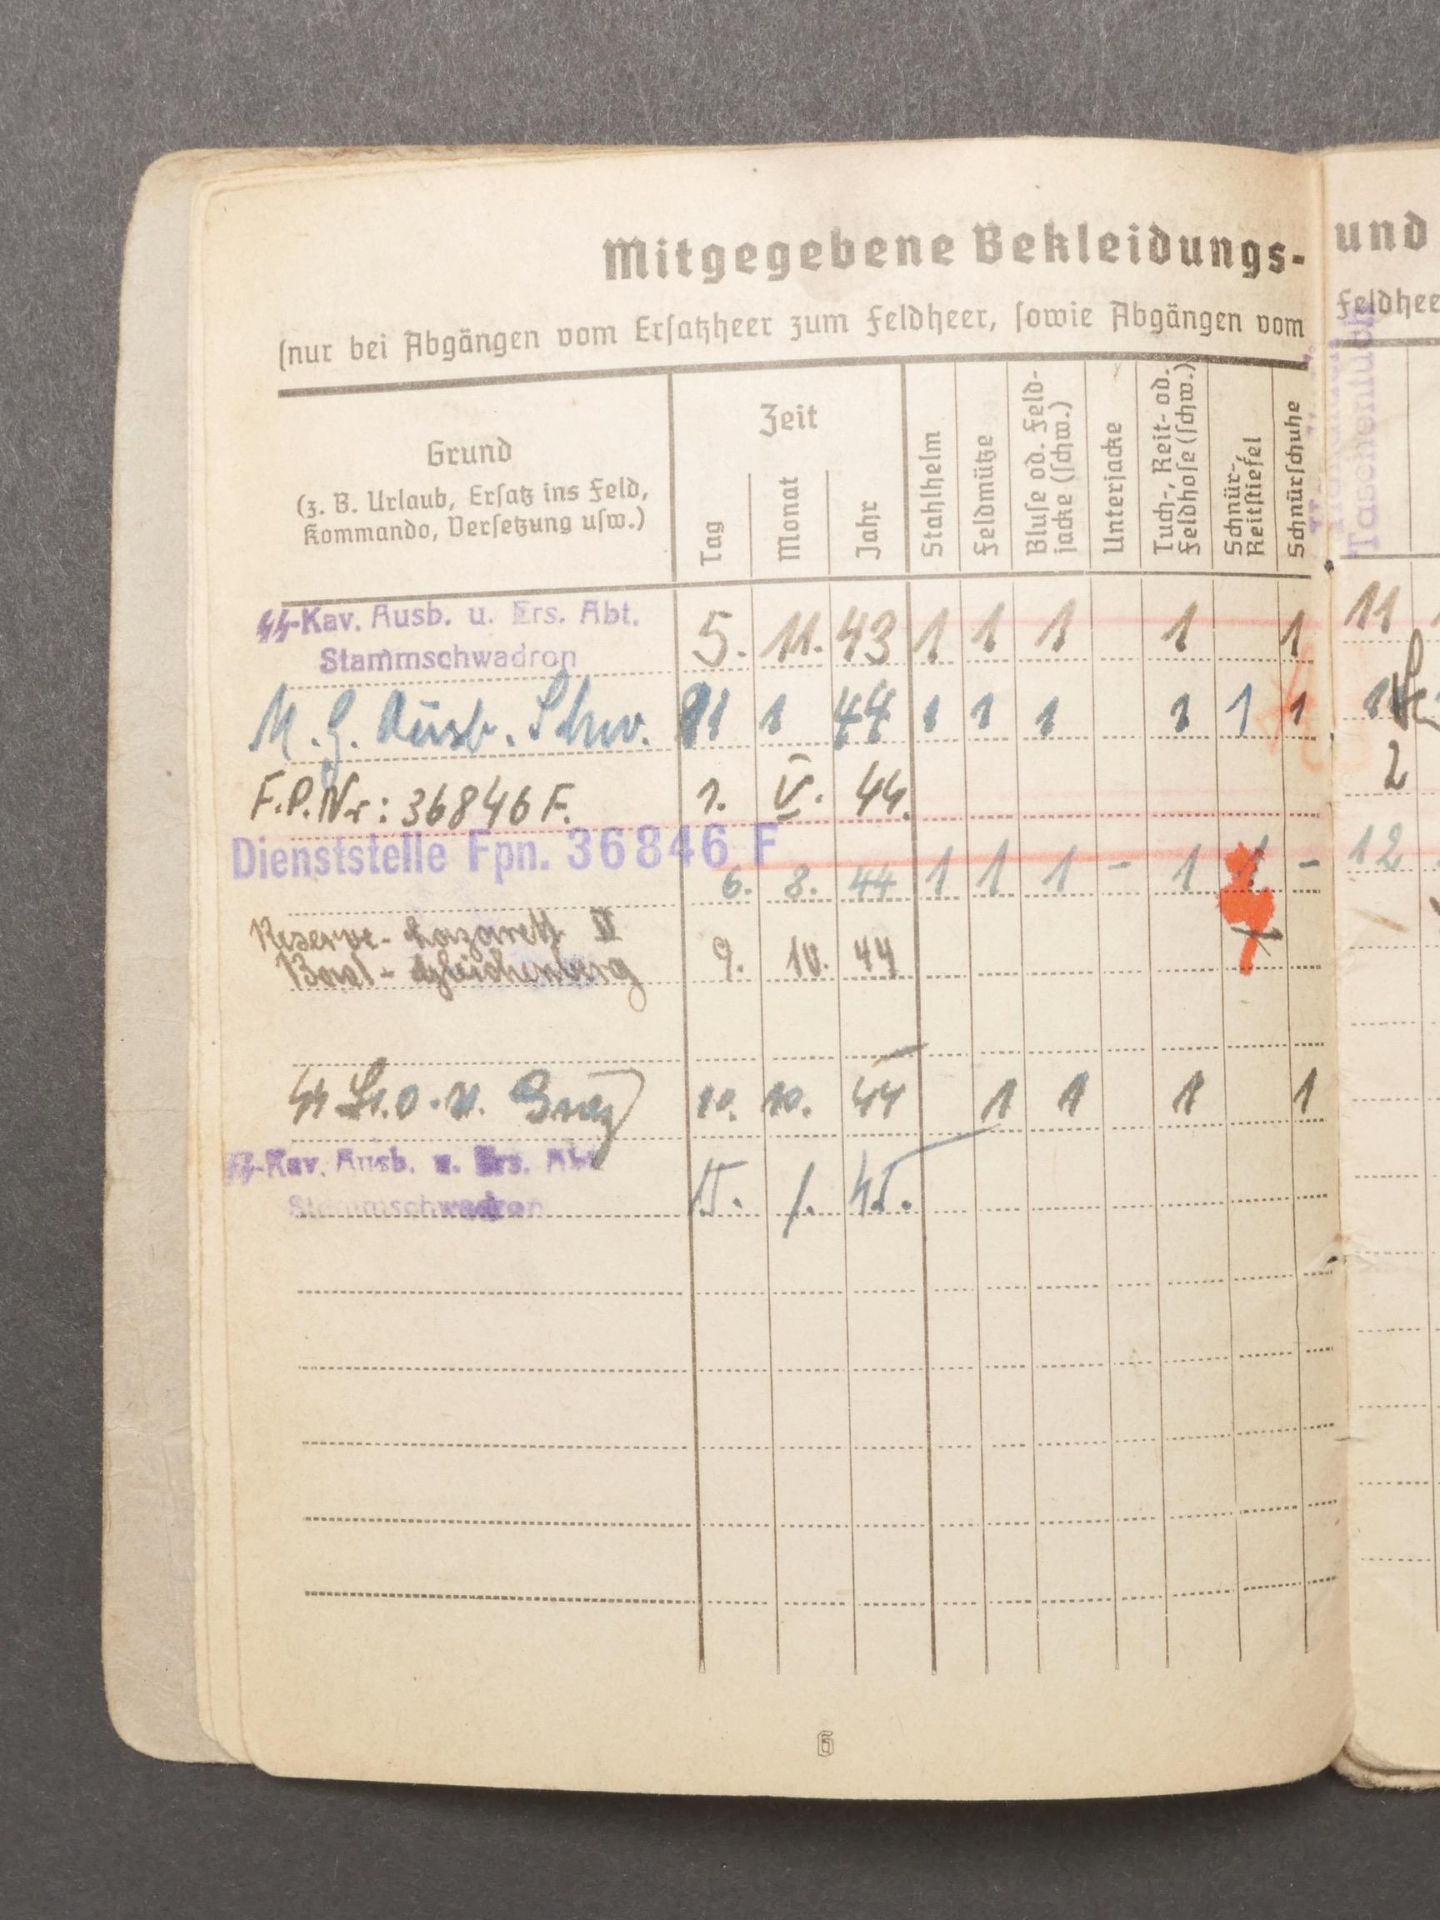 Mitgegebene Bekleidungs- und
(nur bei Abgängen vom Ersatzheer zum Feldheer, sowie Abgängen vom Feldheer
Grund
(z. B. Urlaub, Ersatz ins Feld,
Kommando, Versetzung usw.)
Zeit
Tag
Monat
Jahr
Stahlhelm
Feldmütze
Bluse od. Feld-
jacke (schw.)
Unterjacke
Tuch-, Reit- od.
Feldhose (schw.)
Schnür-,
Reitstiefel
Schnürschuhe
Taschentuch
SS-Kav. Ausb. u. Ers. Abt.
Stammschwadron 5. 11. 43 1 1 1 1 1 11
M. G. Ausb. Schw. 1 44 1 1 1 1 1 1
F.P.Nr: 36846 F. 1. V. 44. 2
Dienststelle Fpn. 36846 F
6. 8. 44 1 1 1 - 1 1 - 12
Reserve-Lazarett II
Bad-Gleichenberg 9. 10. 44
SS 10. 10. 44 1 1 1 1
SS-Kav. Ausb. u. Ers. Abt.
Stammschwadron 15. 1. 45.
6